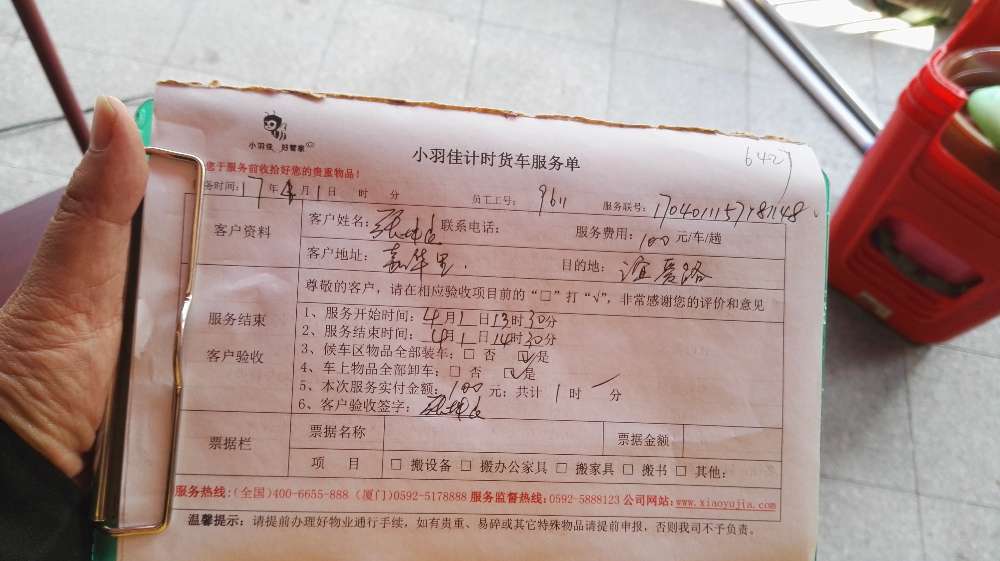 小羽佳 好管家
小羽佳计时货车服务单
6427
您于服务前收拾好您的贵重物品！
务时间：17年4月1日 时 分 员工工号：9611 服务联号：
客户资料
客户姓名：张 联系电话： 服务费用：100元/车/趟
客户地址：嘉华里. 目的地：谊爱路
服务结束
客户验收
尊敬的客户，请在相应验收项目前的“□”打“√”，非常感谢您的评价和意见
1、服务开始时间：4月1日13时30分
2、服务结束时间：4月1日14时30分
3、候车区物品全部装车：□ 否 ☑是
4、车上物品全部卸车：□ 否 ☑是
5、本次服务实付金额：100元；共计 1 时 分
6、客户验收签字：张
票据栏
票据名称 票据金额
项 目 □ 搬设备 □ 搬办公家具 □ 搬家具 □ 搬书 □ 其他：
服务热线：(全国)400-6655-888 (厦门)0592-5178888 服务监督热线：0592-5888123 公司网站：www.xiaoyujia.com
温馨提示：请提前办理好物业通行手续，如有贵重、易碎或其它特殊物品请提前申报，否则我司不予负责。